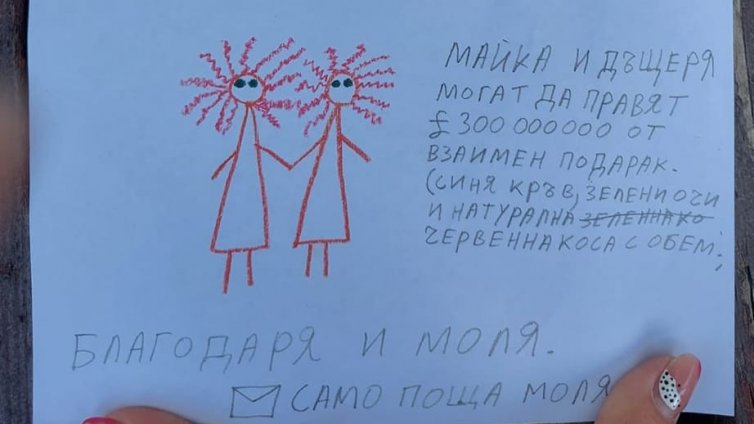 МАЙКА И ДЪЩЕРЯ
МОГАТ ДА ПРАВЯТ
£300 000 000 ОТ
ВЗАИМЕН ПОДАРАК.
(СИНЯ КРЪВ, ЗЕЛЕНИ ОЧИ
И НАТУРАЛНА ЗЕЛЕННАКО
ЧЕРВЕННА КОСА С ОБЕМ;
БЛАГОДАРЯ И МОЛЯ.
САМО ПОЩА МОЛЯ